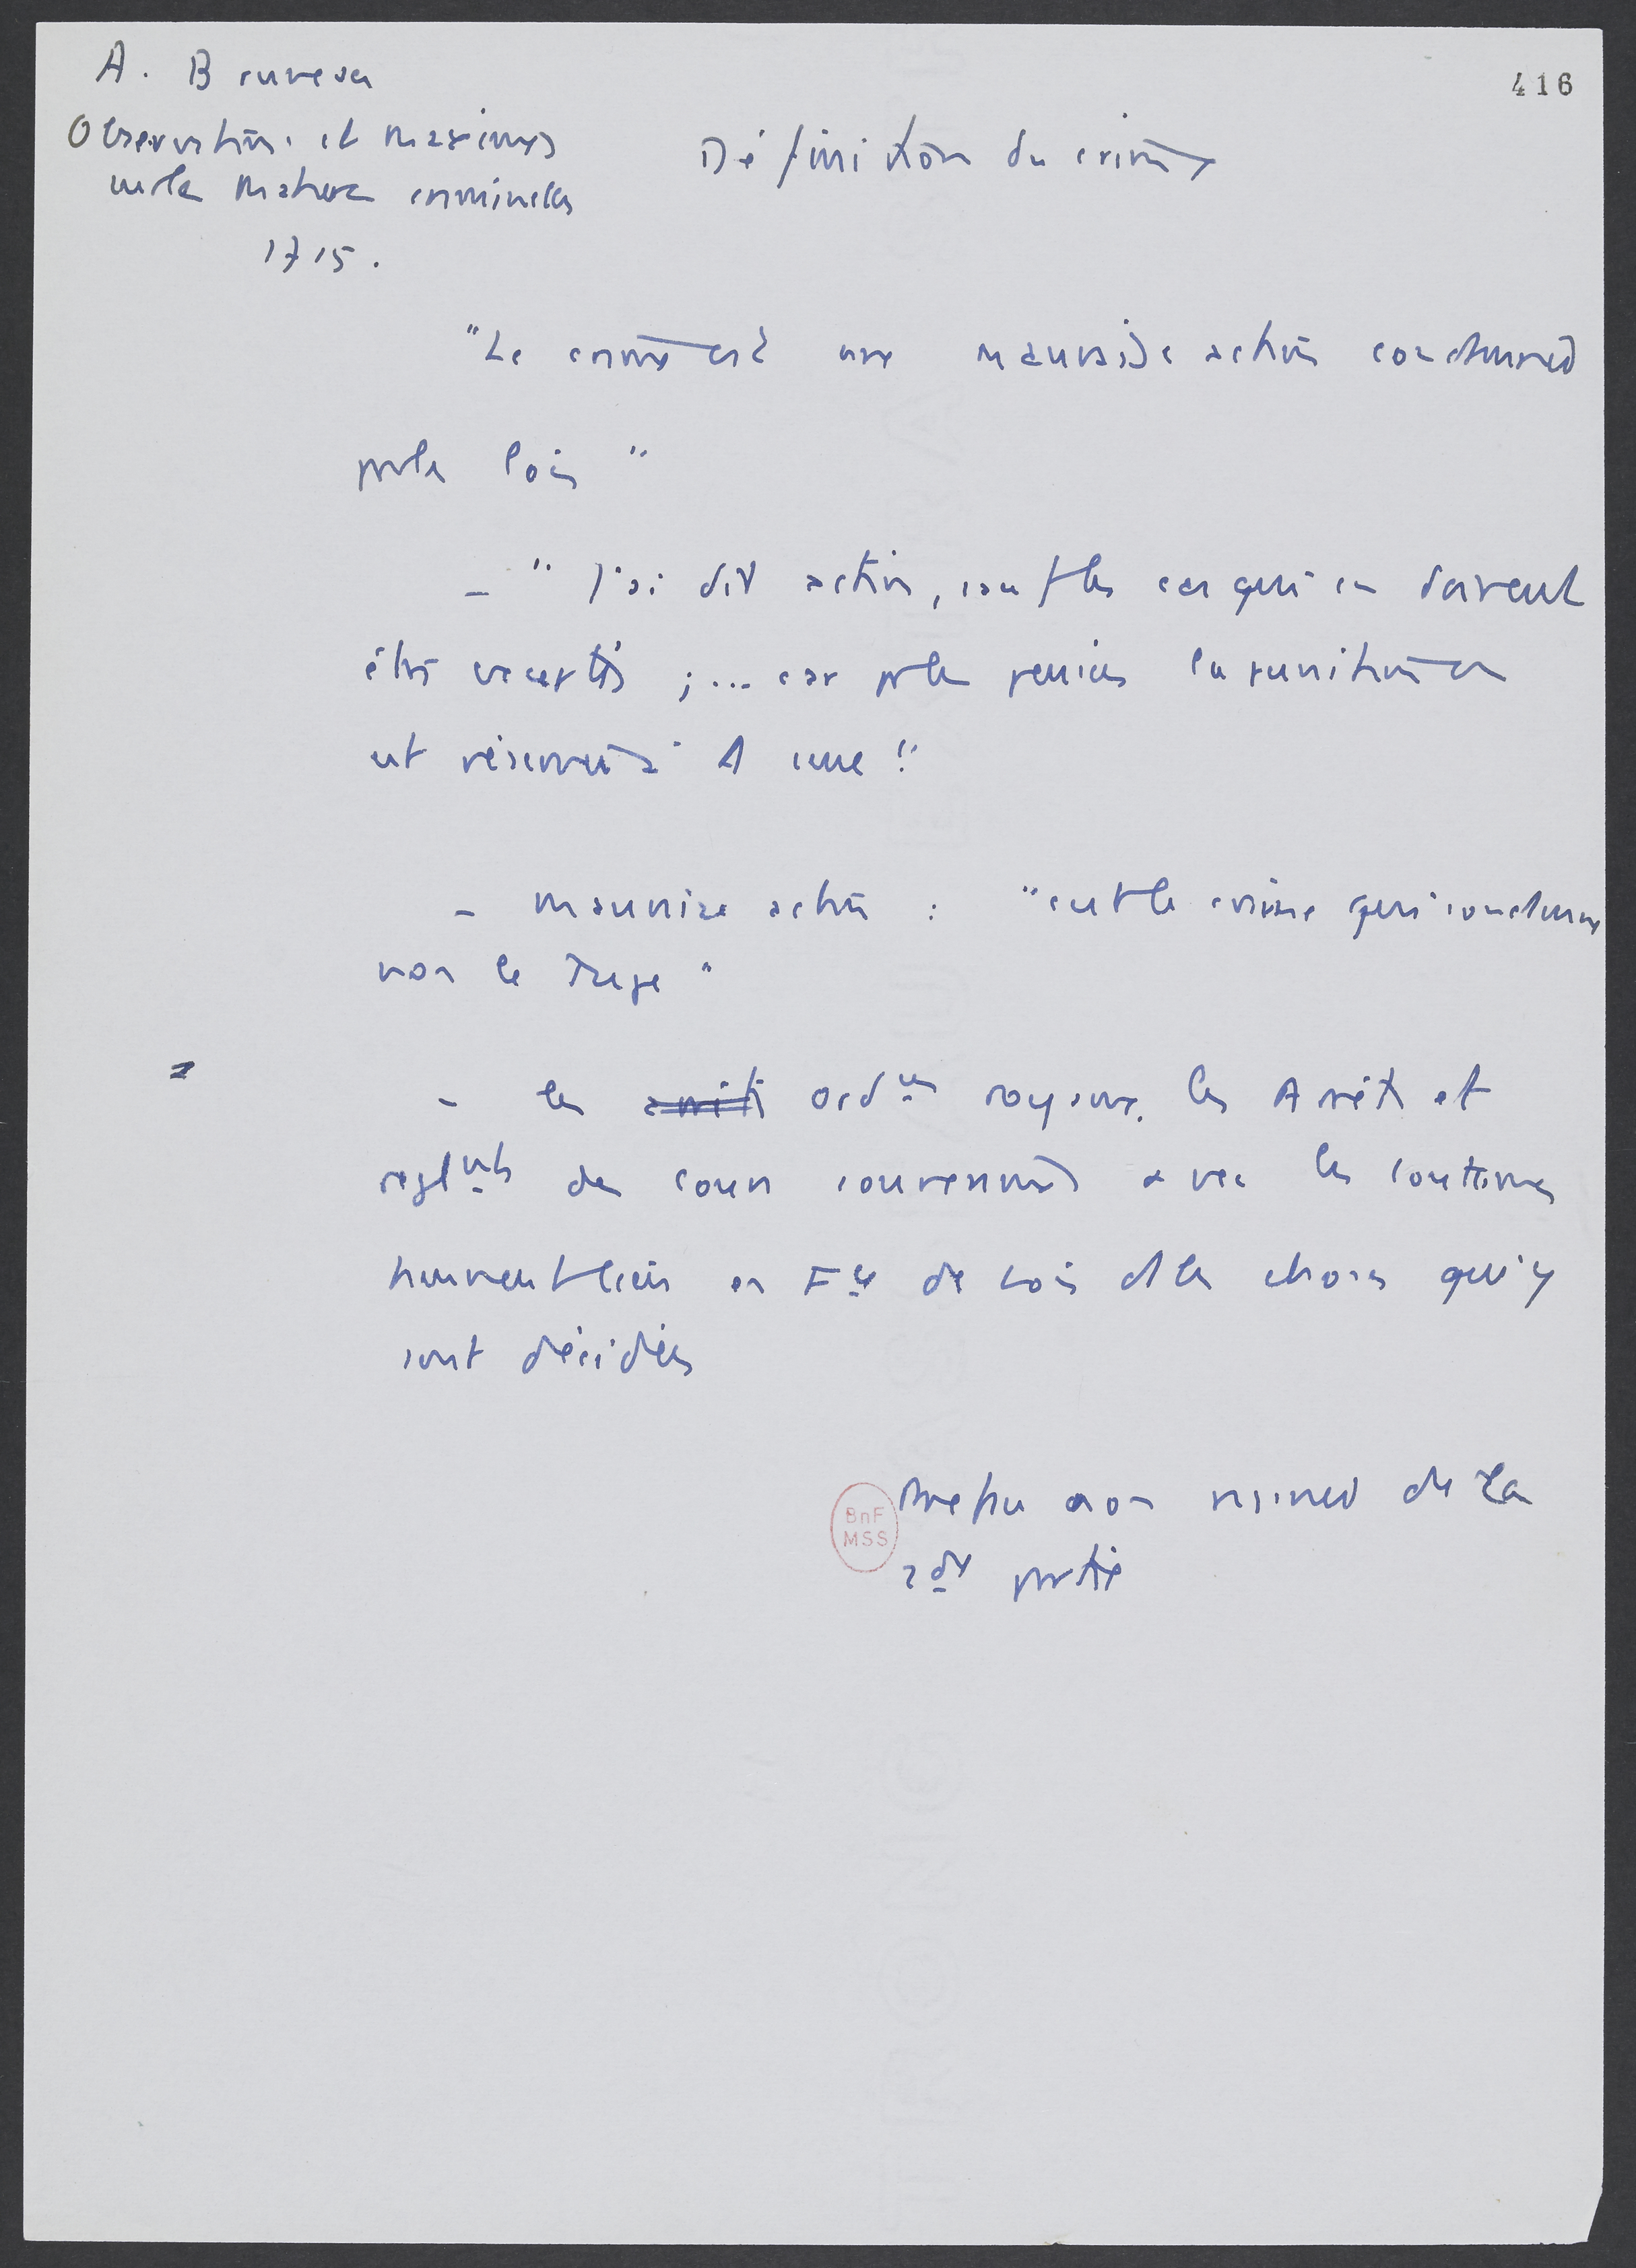 A. Bruneau
416
Observations et maximes
sur les matières criminelles
1715.
Définition du crime
"Le crime est une mauvaise action condamnée
par les lois"
- "J'ai dit action, sauf les cas qui en doivent
être exceptés ; ... car pr les pensées la punition en
est réservée à Dieu"
- mauvaise action : "c'est le crime qui condamne
non le Juge"
- les arrêts ordces royaux, les Arrêts et
reglnts des cours souveraines avec les coutumes
tiennent lieu en Fce de Lois ds les choses qui y
sont décidées
BnF
MSS
Préface non de la
2de partie